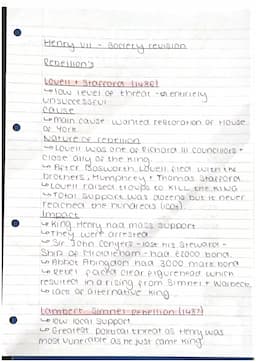 Henry VII - Society revision
Rebellion's
Lovell + Stafford (1486)
↳ low level of threat → entirely
unsuccessful
cause
↳ main cause wanted restoration of House
of York.
Nature of rebellion
↳ Lovell was one of Richard III councillors +
close ally of the king.
↳ After Bosworth Lovell fled with the
brothers, Humphrey + Thomas Stafford.
↳ Lovell raised troops to KILL the KING
↳ Total support was dozens but it never
reached the hundreds (low).
Impact
↳ King Henry had mass support
↳ they were arrested.
↳ Sir John Conyers - lost his Steward-
Ship of Middleham - had £2000 bond.
↳ Abbot Abingdon had 3000 mark bond
↳ Rebel faced clear figurehead which
resulted in a rising from Simnel + Warbeck.
↳ lack of alternative king.
Lambert Simnel rebellion (1487)
↳ low local support
↳ Greatest potential threat as Henry was
most vunerable as he just came king.